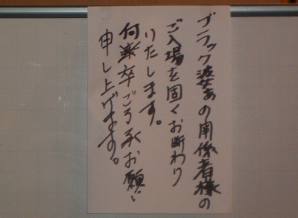 ブラック婆あの関係者様の
ご入場を固くお断わり
いたします。
何卒ご了承お願い
申し上げます。